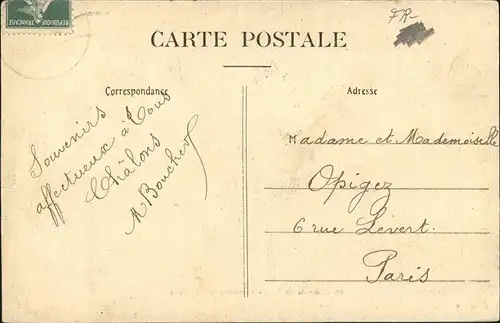 REPUBLIQUE FRANÇAISE
FR-
CARTE POSTALE
Correspondance
Souvenirs
affectueux à tous
Châlons
M Boucherf
Adresse
Madame et Mademoiselle
Opigez
6 rue Levert.
Paris